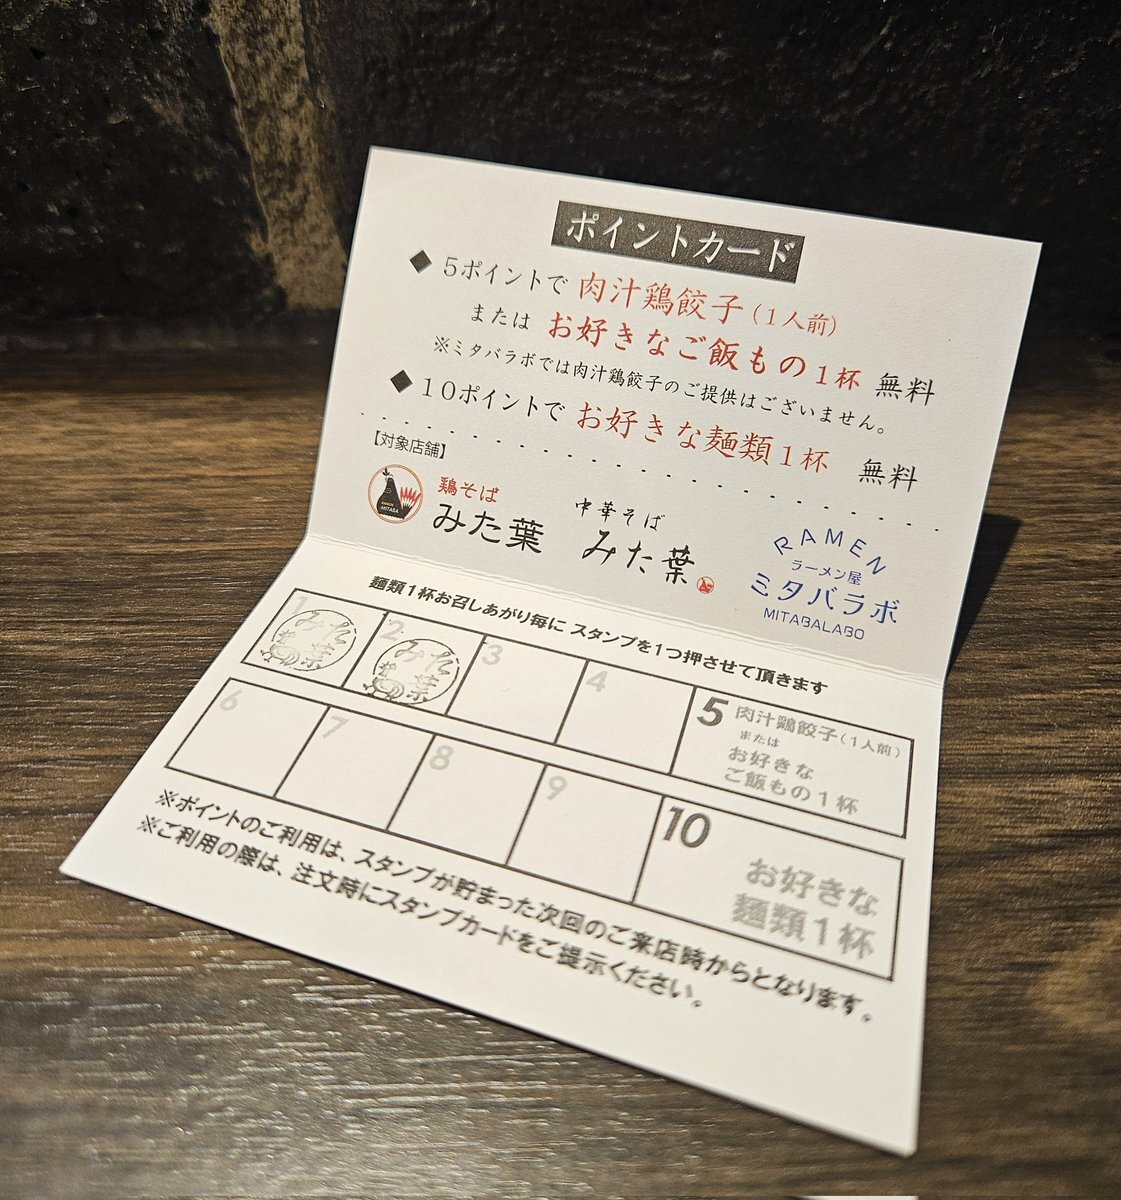 ポイントカード
◆ 5ポイントで 肉汁鶏餃子(1人前)
または お好きなご飯もの1杯 無料
※ミタバラボでは肉汁鶏餃子のご提供はございません。
◆ 10ポイントで お好きな麺類1杯 無料
【対象店舗】
鶏そば
みた葉
MITABA
中華そば
みた葉
RAMEN
ラーメン屋
ミタバラボ
MITABALABO
麺類1杯お召しあがり毎に スタンプを1つ押させて頂きます
1 みた葉
2 みた葉
3
4
5 肉汁鶏餃子(1人前)
または
お好きな
ご飯もの1杯
6
7
8
9
10 お好きな
麺類1杯
※ポイントのご利用は、スタンプが貯まった次回のご来店時からとなります。
※ご利用の際は、注文時にスタンプカードをご提示ください。